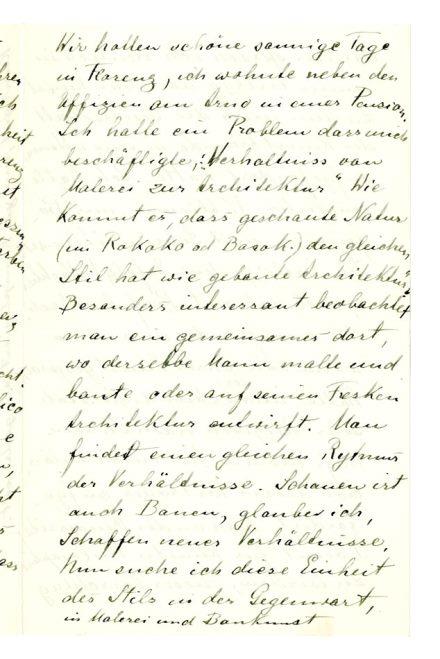 Wir hatten schöne sonnige Tage
in Florenz, ich wohnte neben den
Uffizien am Arno in einer Pension.
Ich hatte ein Problem dass mich
beschäftigte, „Verhältniss von
Malerei zur Architektur" Wie
kommt es, dass geschaute Natur
(im Rokoko od Barok.) den gleichen
Stil hat wie gebaute Architektur"
Besonders interessant beobachtet
man ein gemeinsames dort,
wo derselbe Mann malte und
baute oder auf seinen Fresken
Architektur entwirft. Man
findet einen gleichen Rytmus
der Verhältnisse. Schauen ist
auch Bauen, glaube ich,
Schaffen neuer Verhältnisse.
Nun suche ich diese Einheit
des Stils in der Gegenwart,
in Malerei und Baukunst